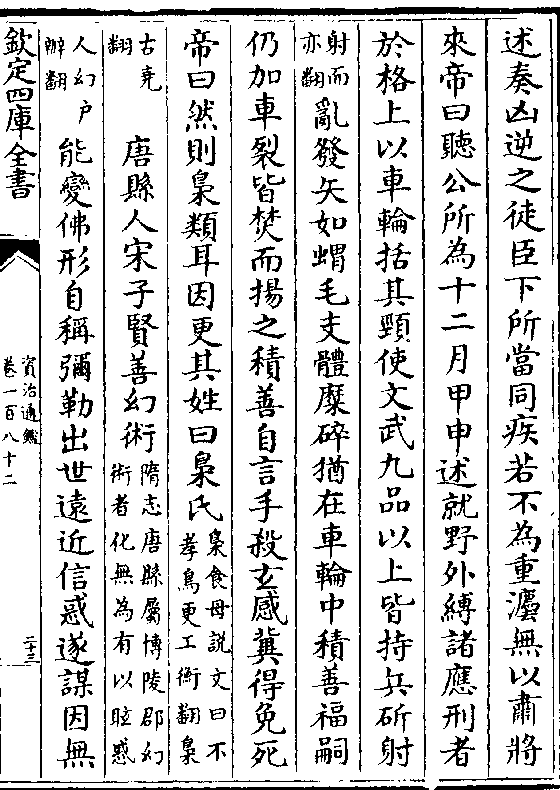 述奏凶逆之徒臣下所當同疾若不為重灋無以肅將
來帝曰聽公所為十二月甲申述就野外縛諸應刑者
於格上以車輪括其頸使文武九品以上皆持兵斫射
射而
亦翻
亂發矢如蝟毛支體糜碎猶在車輪中積善福嗣
仍加車裂皆焚而揚之積善自言手殺玄感冀得免死
帝曰然則梟類耳因更其姓曰梟氏
梟食母說文曰不
孝鳥更工衡翻梟
古堯
翻
唐縣人宋子賢善幻術
隋志唐縣屬博陵郡幻
術者化無為有以眩惑
人幻户
辦翻
能變佛形自稱彌勒出世遠近信惑遂謀因無
欽定四庫全書
資治通鑑
卷一百八十二
二十三